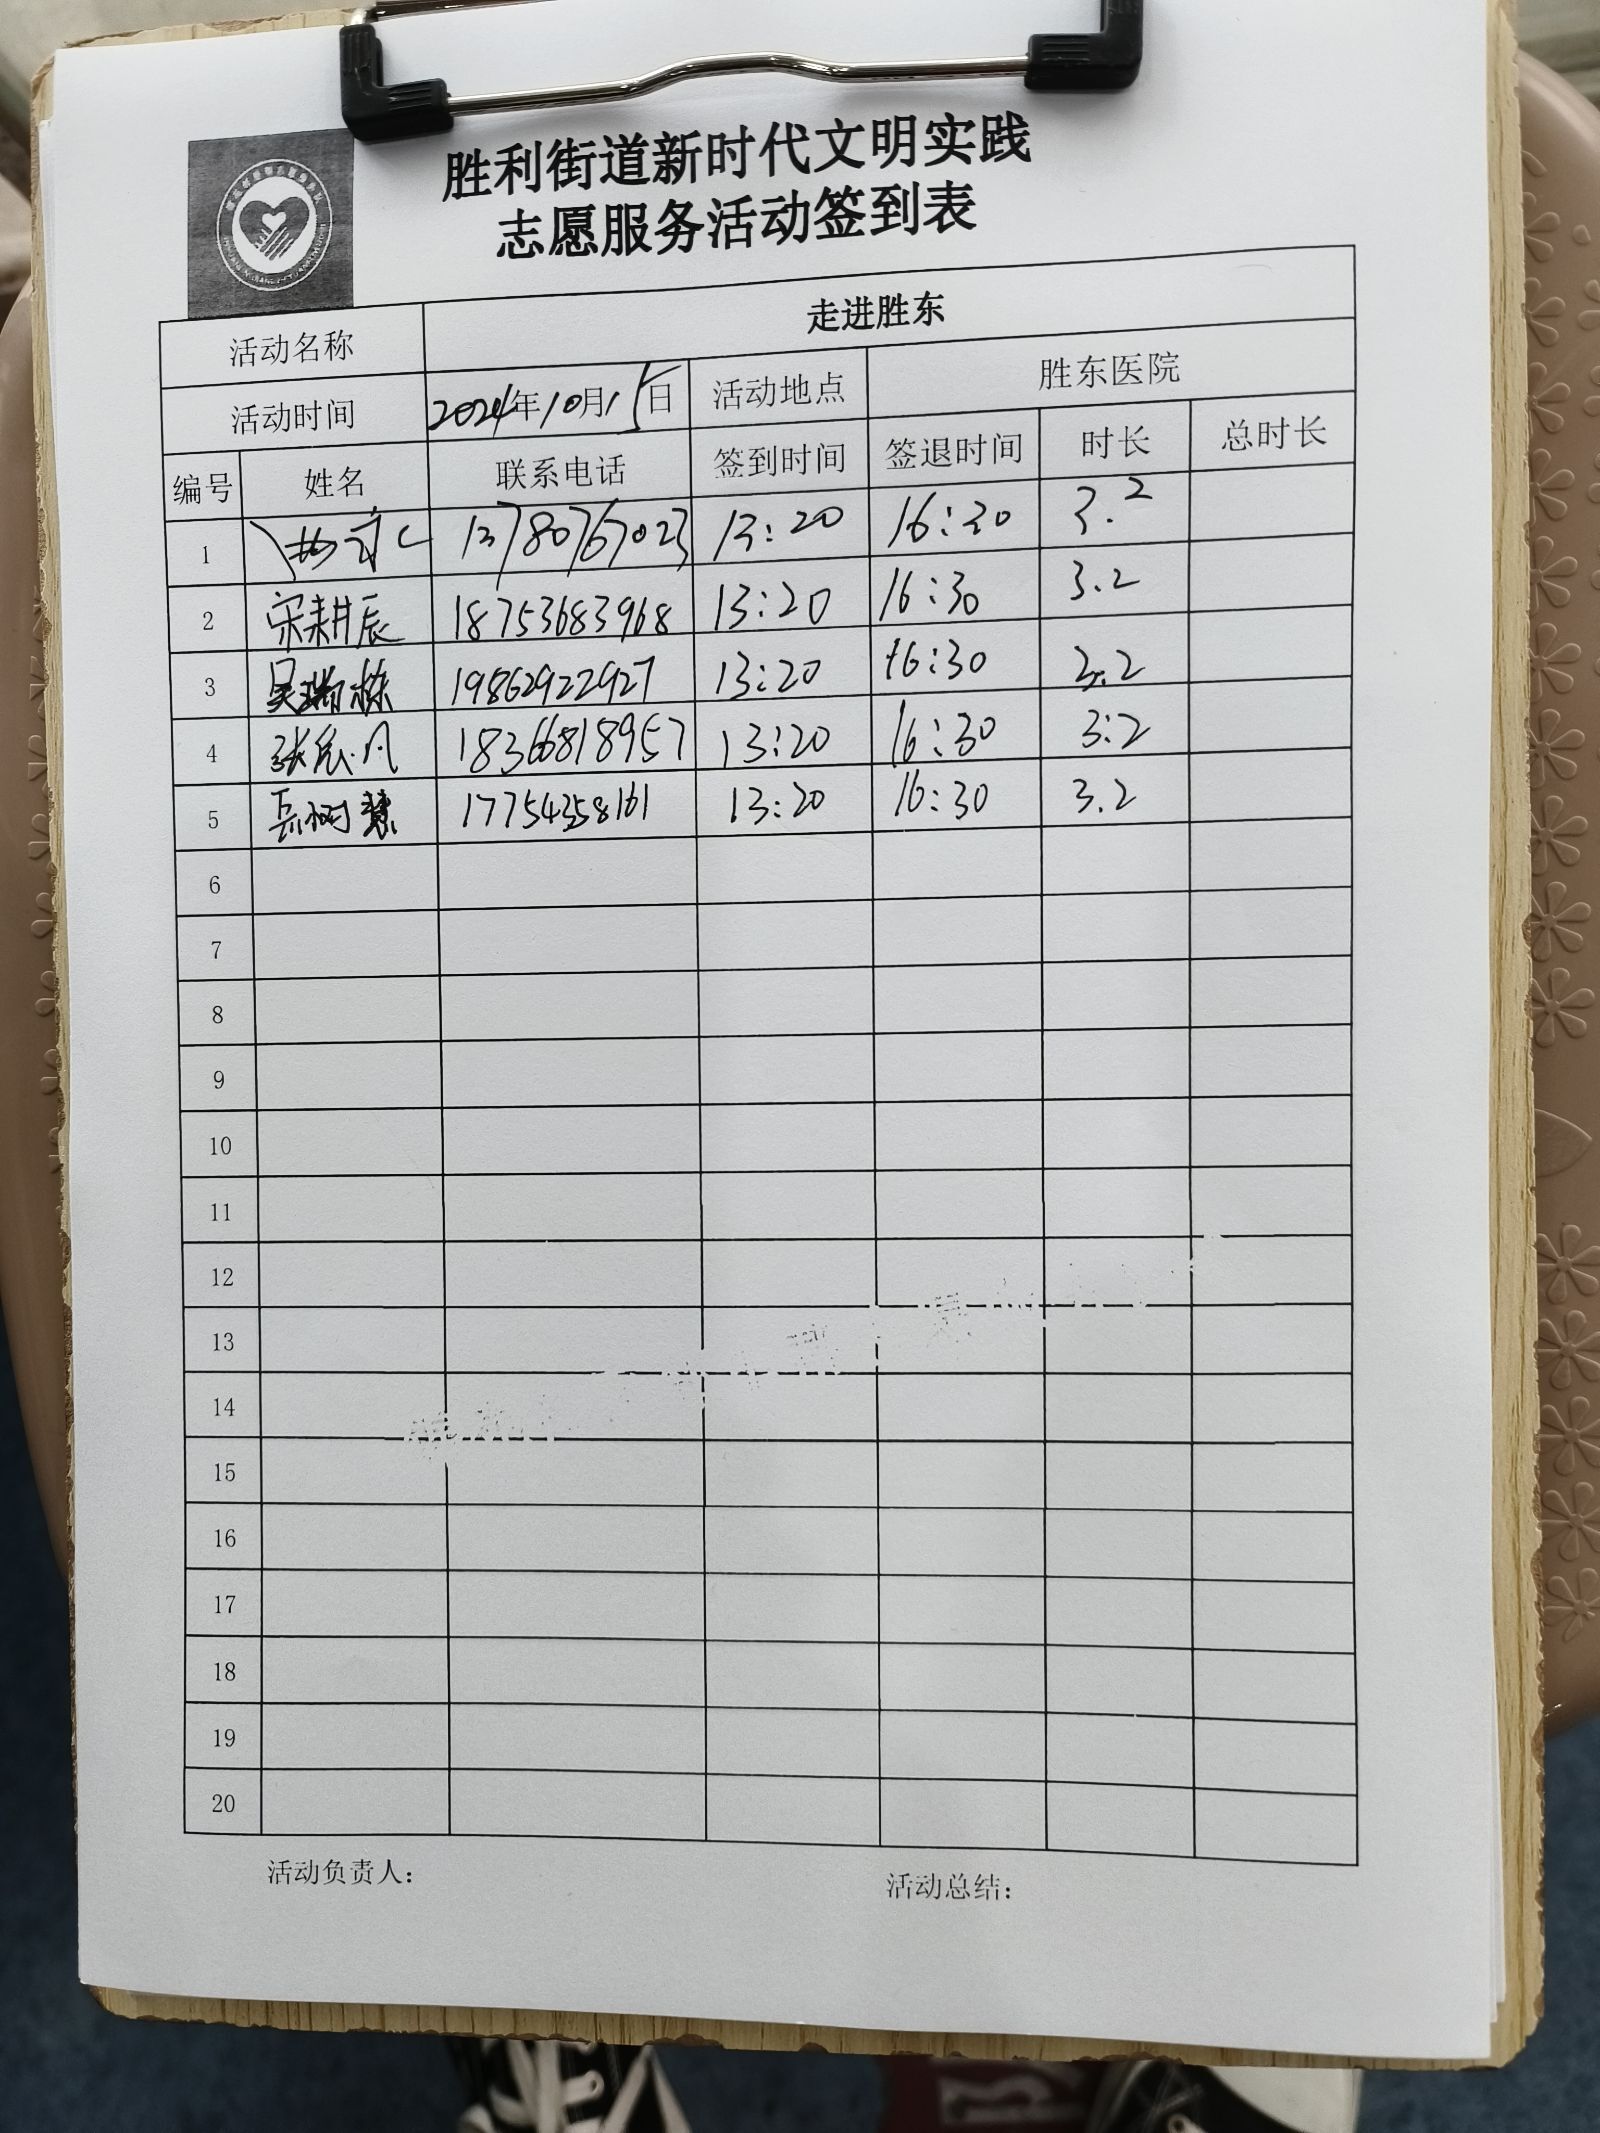 胜利街道新时代文明实践
志愿服务活动签到表
活动名称 走进胜东
活动时间 2024年10月15日 活动地点 胜东医院
编号 姓名 联系电话 签到时间 签退时间 时长 总时长
1 13780767023 13:20 16:30 3.2
2 宋耕辰 18753683968 13:20 16:30 3.2
3 吴瑞栋 19862922927 13:20 16:30 3.2
4 张辰凡 18366818957 13:20 16:30 3:2
5 岳树慧 17754358161 13:20 16:30 3.2
6
7
8
9
10
11
12
13
14
15
16
17
18
19
20
活动负责人： 活动总结：